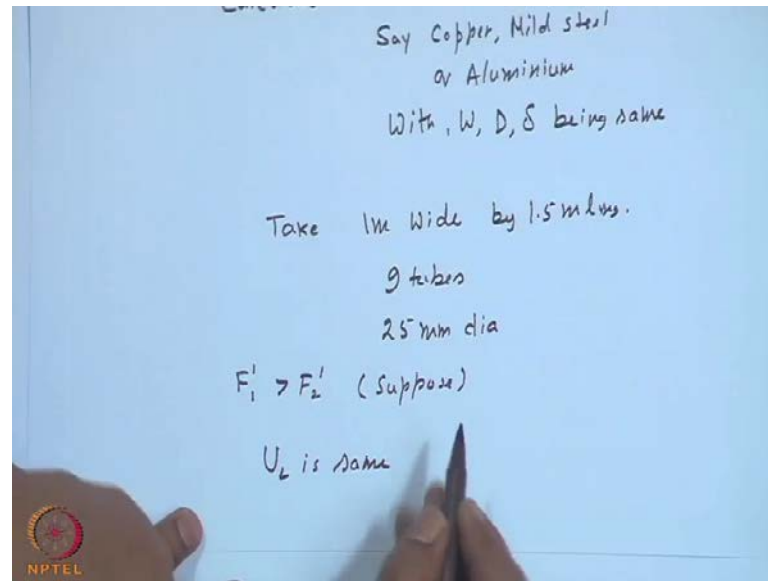 Say Copper, Mild steel
or Aluminium
With, W, D, δ being same
Take 1m wide by 1.5 m long.
9 tubes
25 mm dia
F₁' > F₂' (Suppose)
U_L is same
NPTEL